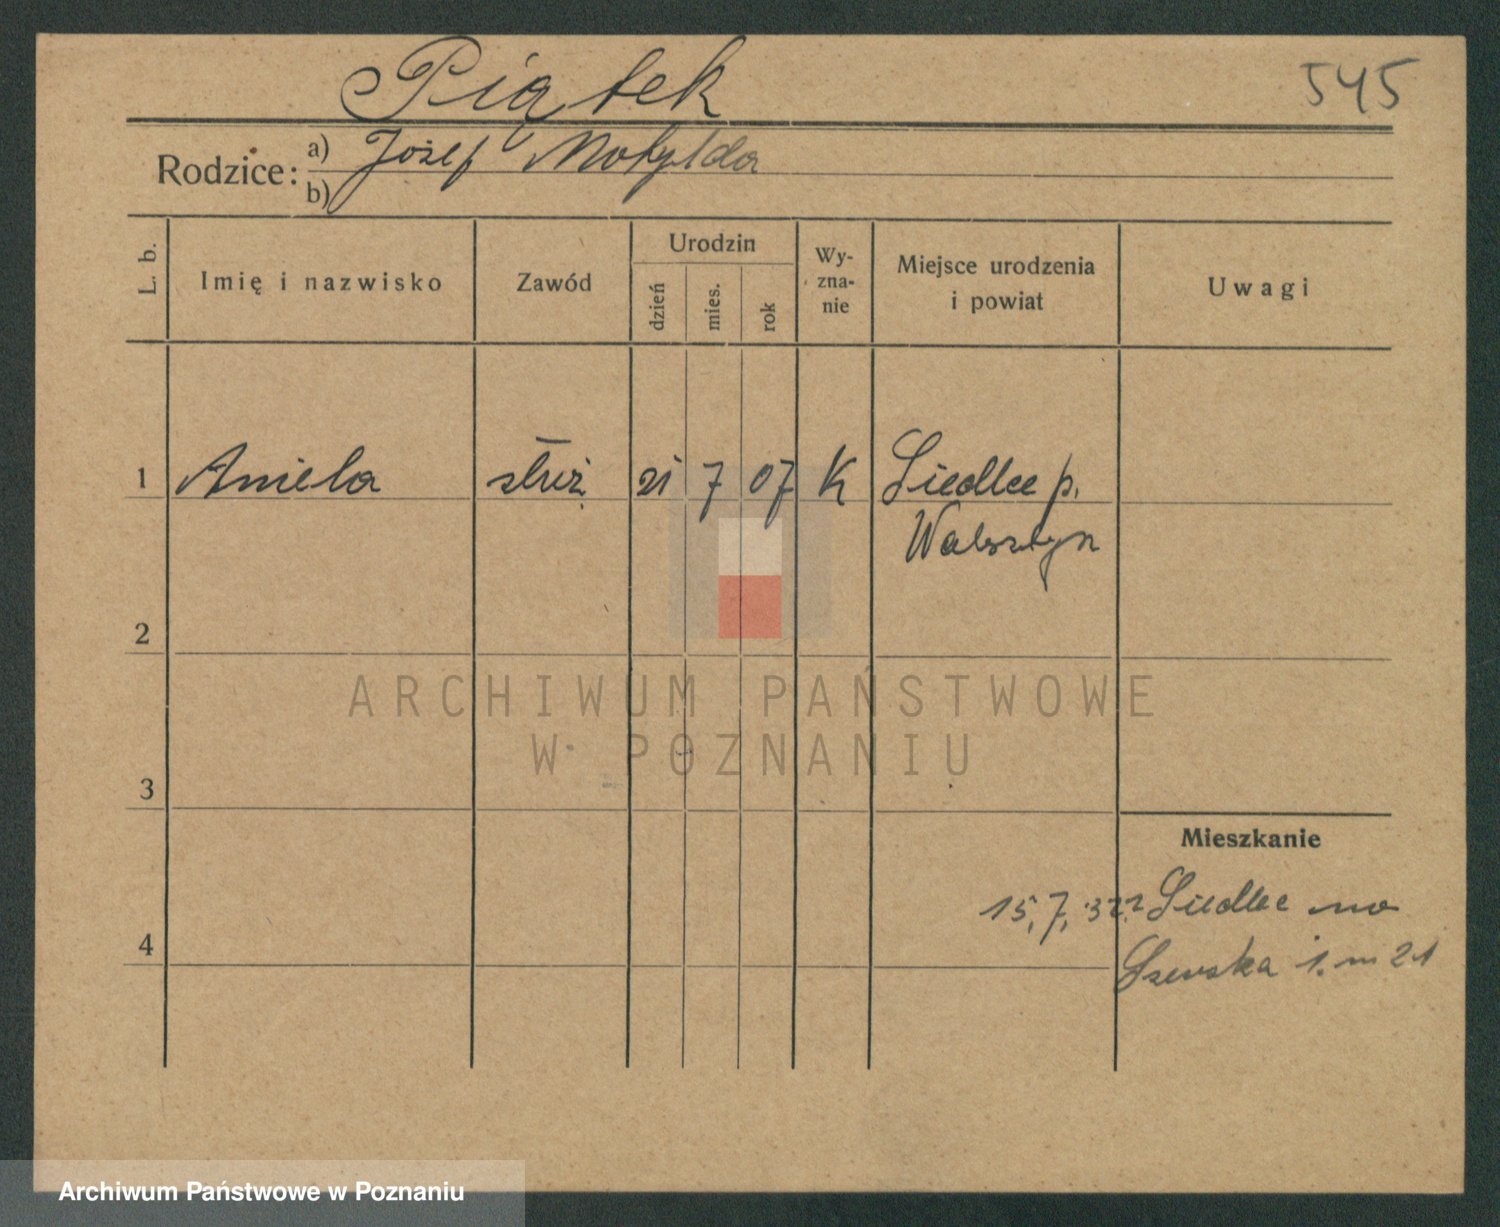 Piątek 545
Rodzice: a) Józef Matylda
b)
L. b. Imię i nazwisko Zawód Urodzin dzień mies. rok Wy-zna-nie Miejsce urodzenia i powiat Uwagi
1 Aniela służ. 21 7 07 K Siedlce p.
2
ARCHIWUM PAŃSTWOWE
W POZNANIU
3
Mieszkanie
15.7.32 Siedlce na
4 Szewska 1. m 21
Archiwum Państwowe w Poznaniu